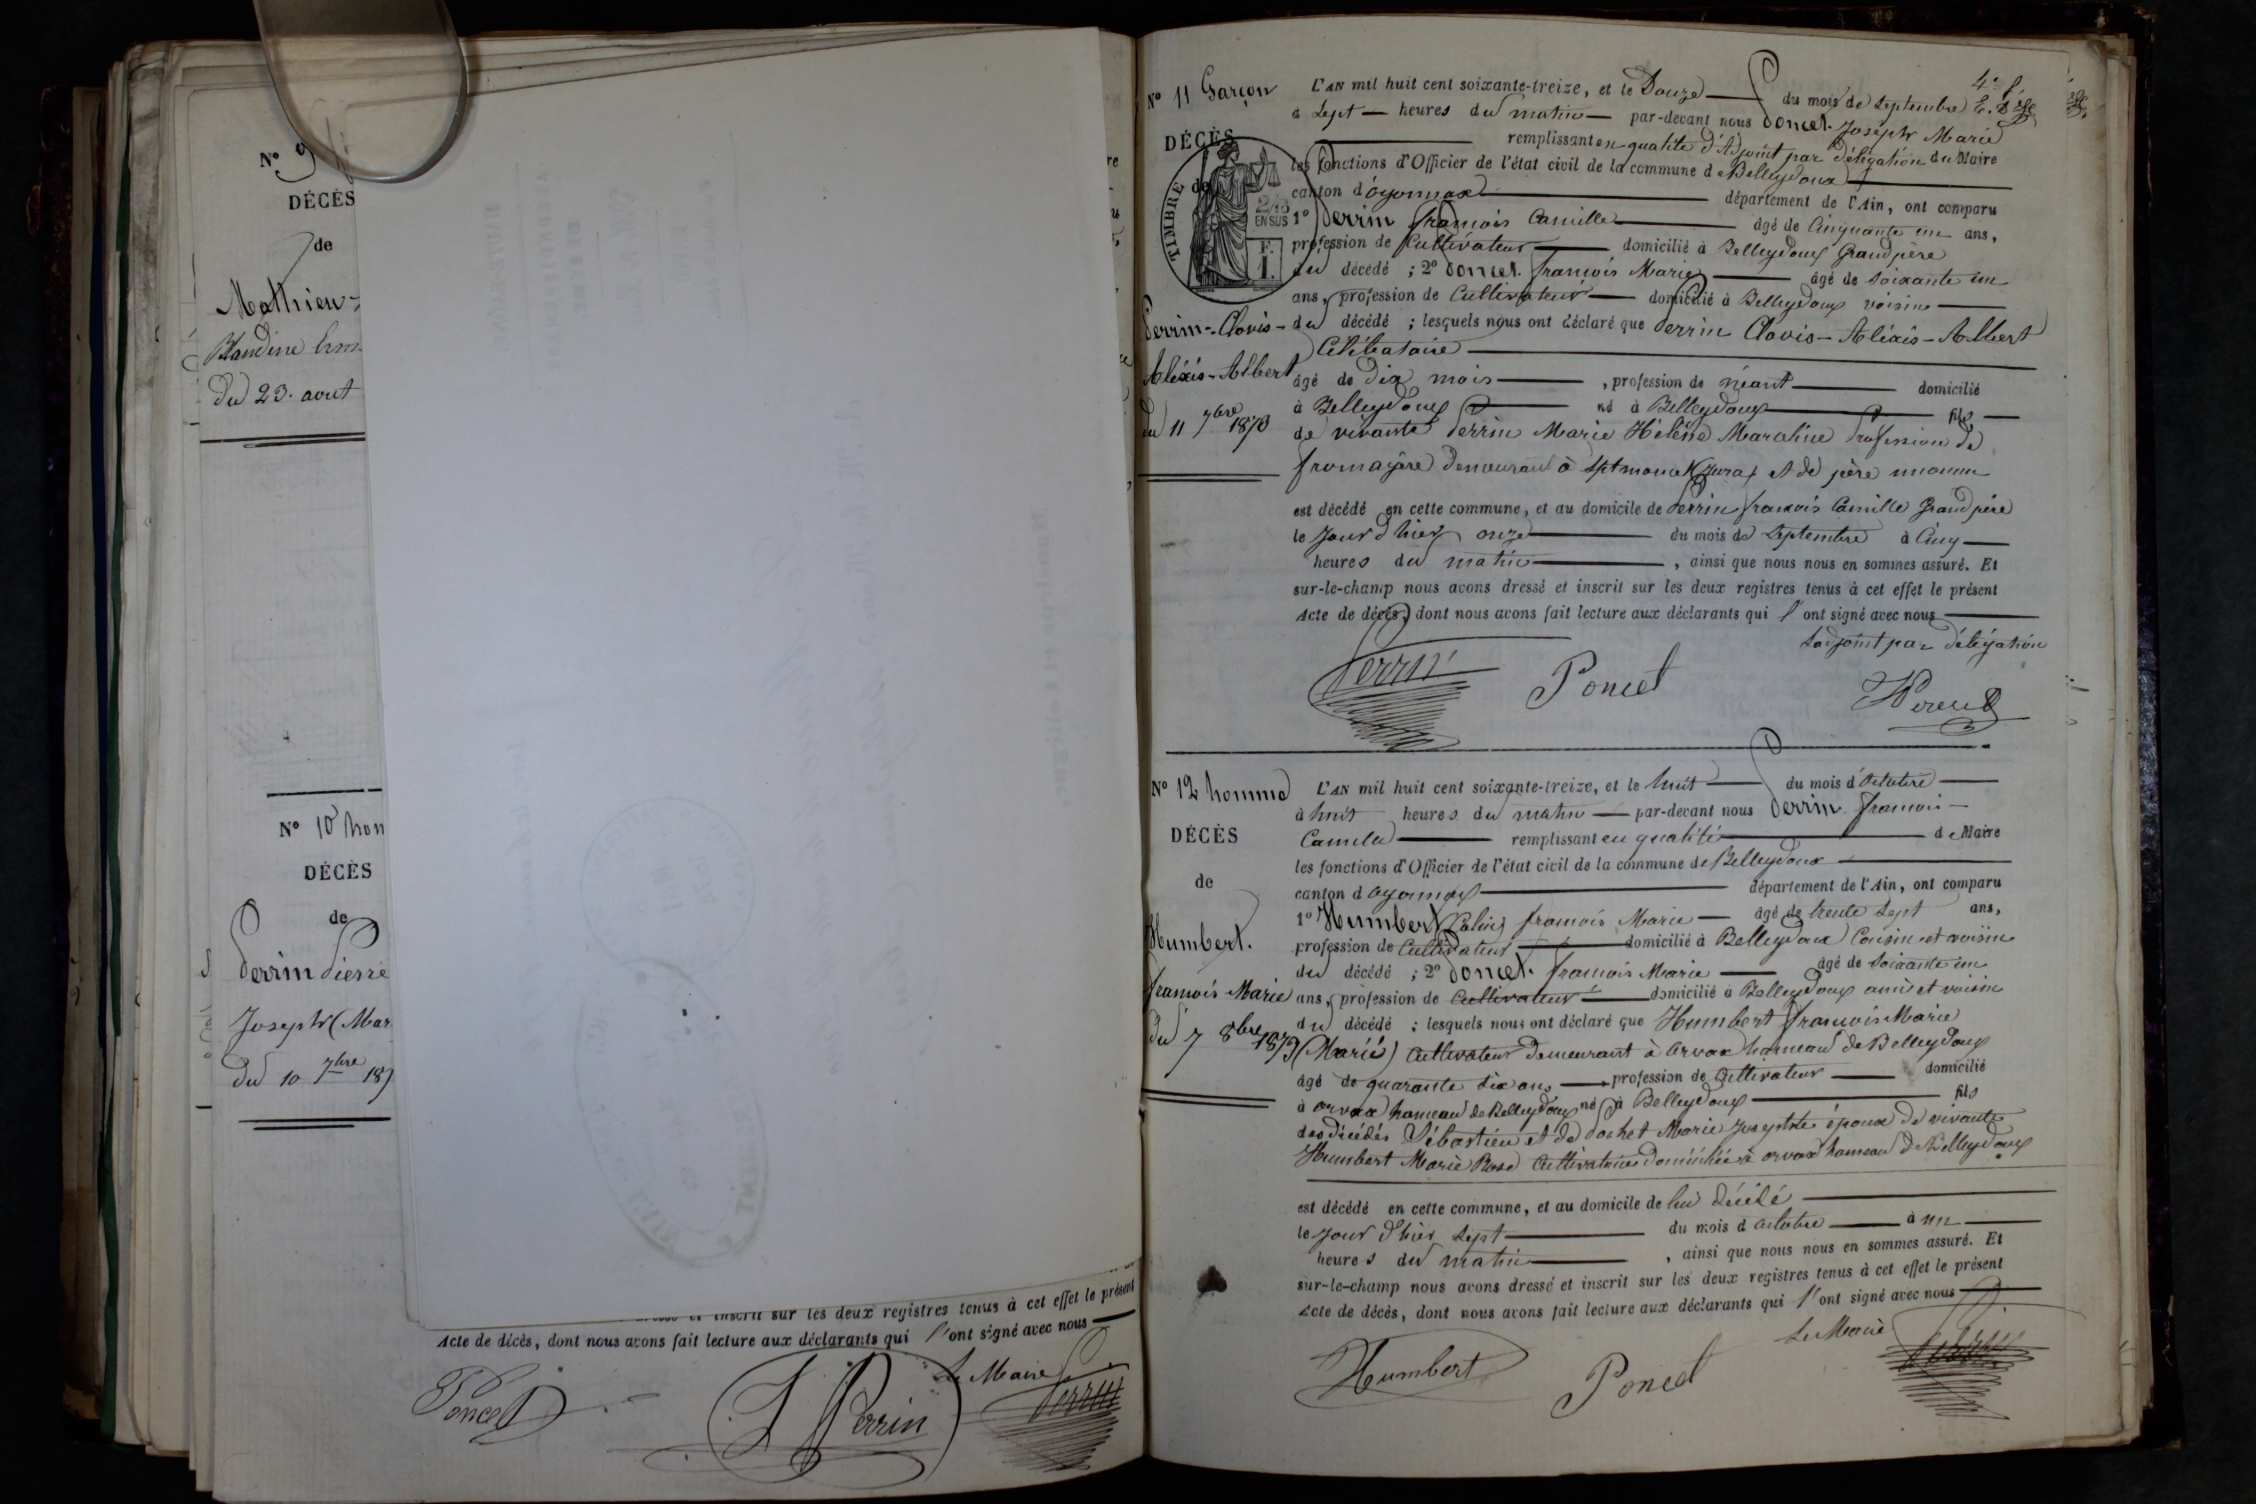 N° 9
DÉCÈS
de
Mathieu-
Blandine
du 23. août
N° 10 hom
DÉCÈS
de
Perrin Pierre
Joseph (Mar
du 10 7bre 187
et inscrit sur les deux registres tenus à cet effet le présent
Acte de décès, dont nous avons fait lecture aux déclarants qui l'ont signé avec nous
Le Maire
Poncet
J Perrin
Perrin
N° 11 Garçon
DÉCÈS
de
TIMBRE
2/10
EN SUS
F.
1.
Perrin-Clovis-
Aléxis-Albert
du 11 7bre 1873
L'AN mil huit cent soixante-treize, et le Douze du mois de Septembre
à Sept heures du matin par-devant nous Poncet Joseph Marie
remplissant en qualité d'Adjoint par délégation du Maire
les fonctions d'Officier de l'état civil de la commune d Belleydoux
canton d'oyonnax département de l'Ain, ont comparu
1° Perrin françois Camille âgé de Cinquante un ans,
profession de Cultivateur domicilié à Belleydoux Grand père
du décédé ; 2° Poncet. françois Marie âgé de Soixante un
ans, profession de Cultivateur domicilié à Belleydoux voisin
du décédé ; lesquels nous ont déclaré que Perrin Clovis-Aléxis-Albert
Célibataire
âgé de dix mois , profession de néant domicilié
à Belleydoux né à Belleydoux fils
de vivante Perrin Marie Hélène Maraline Profession de
fromagère demeurant à Septmoncel (Jura) et de père inconnu
est décédé en cette commune, et au domicile de Perrin françois Camille Grand père
le Jour d'hier onze du mois de Septembre à Cinq
heures du matin , ainsi que nous nous en sommes assuré. Et
sur-le-champ nous avons dressé et inscrit sur les deux registres tenus à cet effet le présent
Acte de décès, dont nous avons fait lecture aux déclarants qui l'ont signé avec nous
Ladjoint par délégation
Perrin
Poncet
N° 12 homme
DÉCÈS
de
Humbert.
françois Marie
du 7 8bre 1873
L'AN mil huit cent soixante-treize, et le huit du mois d'Octobre
à huit heures du matin par-devant nous Perrin françois-
Camille remplissant en qualité d e Maire
les fonctions d'Officier de l'état civil de la commune de Belleydoux
canton d Oyonnax département de l'Ain, ont comparu
1° Humbert françois Marie âgé de trente sept ans,
profession de Cultivateur domicilié à Belleydoux Cousin et voisin
du décédé ; 2° Poncet. françois Marie âgé de Soixante un
ans, profession de Cultivateur domicilié à Belleydoux ami et voisin
du décédé ; lesquels nous ont déclaré que Humbert françois Marie
(Marié) Cultivateur demeurant à Orvaz hameau de Belleydoux
âgé de quarante six ans profession de Cultivateur domicilié
à orvaz hameau de Belleydoux né à Belleydoux fils
des décédés Sébastien et de Pochet Marie Josephte époux de vivante
Humbert Marie Rose Cultivatrice domiciliée à orvaz hameau de Belleydoux
est décédé en cette commune, et au domicile de lui décédé
le jour d'hier Sept du mois d Octobre à un
heures du matin , ainsi que nous nous en sommes assuré. Et
sur-le-champ nous avons dressé et inscrit sur les deux registres tenus à cet effet le présent
Acte de décès, dont nous avons fait lecture aux déclarants qui l'ont signé avec nous
Le Maire
Humbert
Poncet
Perrin